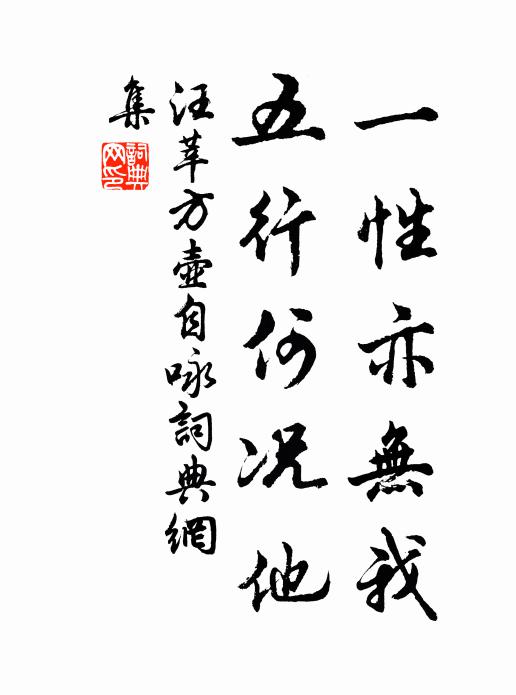 一性亦無我
五行何况他
汪莘方壺自咏詞典網
集
詞典网印